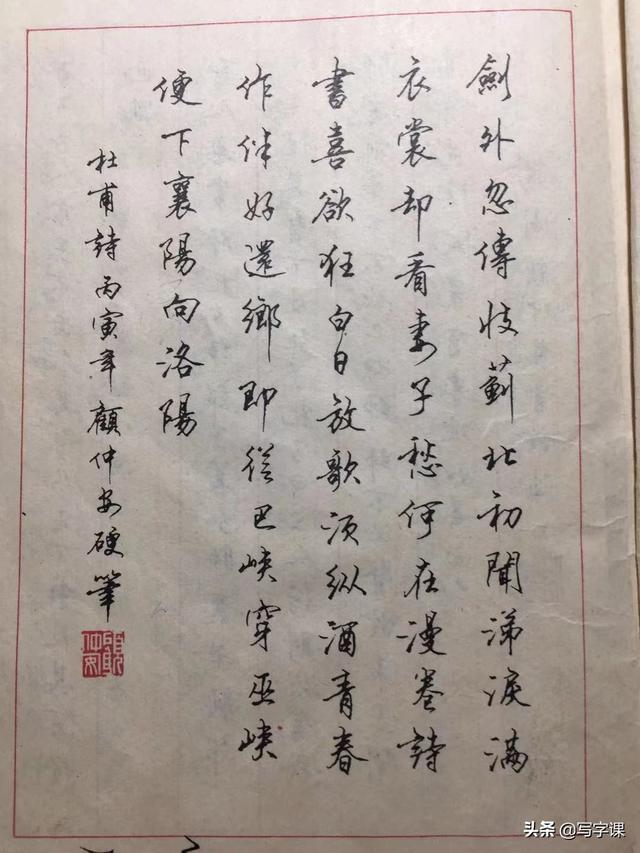 劍外忽傳收薊北初聞涕淚滿
衣裳却看妻子愁何在漫卷詩
書喜欲狂白日放歌須纵酒青春
作伴好還鄉即從巴峽穿巫峽
便下襄陽向洛陽
杜甫詩丙寅年顧仲安硬筆
顧仲安
头条 @写字课